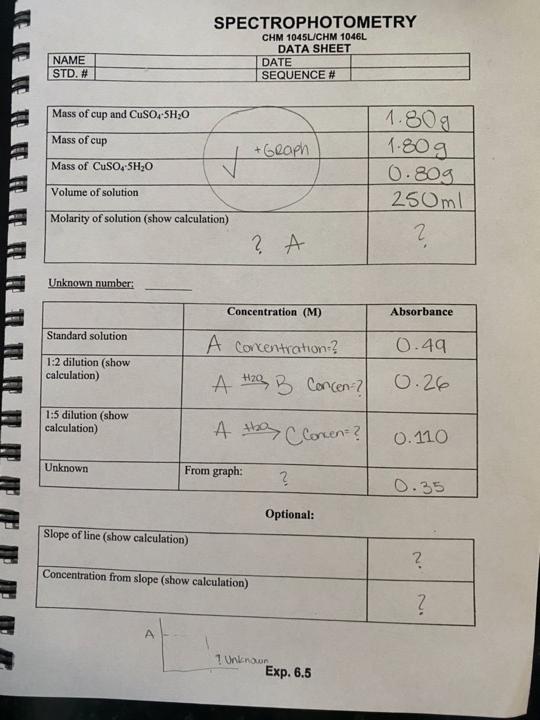 SPECTROPHOTOMETRY
CHM 1045L/CHM 1046L
DATA SHEET
NAME DATE
STD. # SEQUENCE #
Mass of cup and CuSO4·5H2O 1.80g
Mass of cup 1.80g
+Graph
Mass of CuSO4·5H2O ✓ 0.80g
Volume of solution 250ml
Molarity of solution (show calculation) ?
? A
Unknown number:
Concentration (M) Absorbance
Standard solution A Concentration=? 0.49
1:2 dilution (show
calculation) A H2O→ B Concen=? 0.26
1:5 dilution (show
calculation) A H2O→ C Concen=? 0.110
Unknown From graph: ? 0.35
Optional:
Slope of line (show calculation) ?
Concentration from slope (show calculation) ?
A
? Unknown
Exp. 6.5